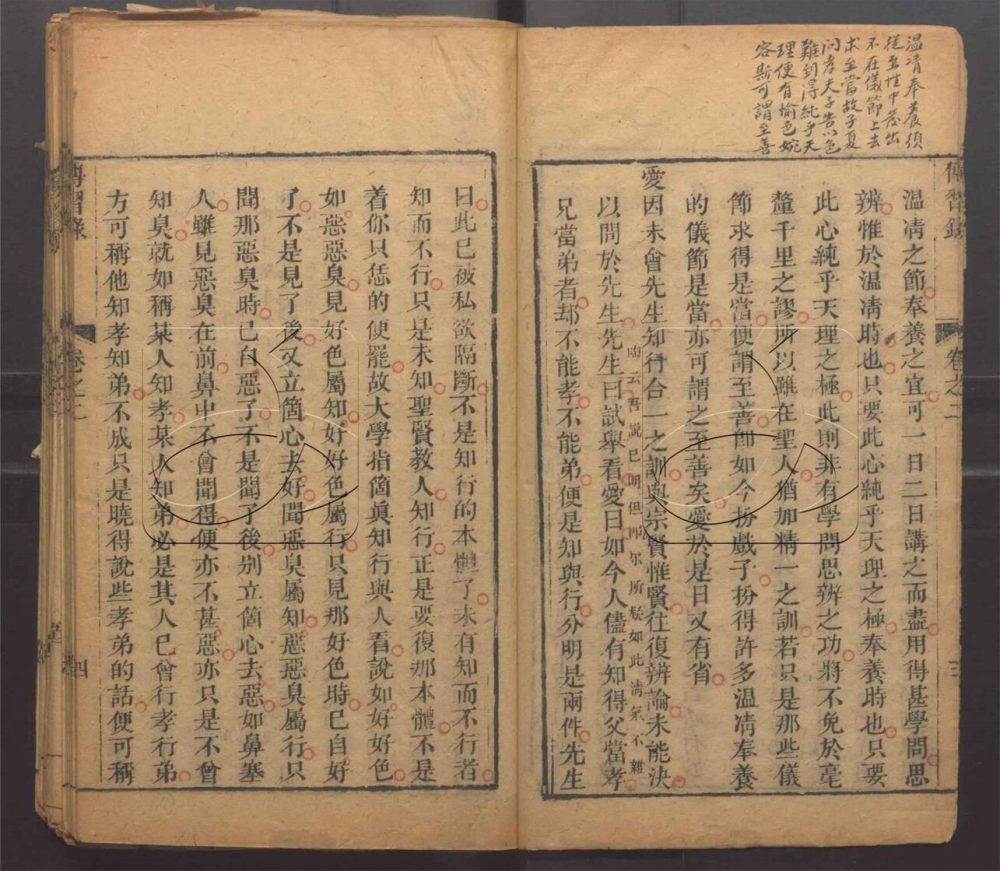 温凊奉養須
從至性中發出
不在儀節上去
求至當故子夏
問孝夫子告以色
難到得純乎天
理便有愉色婉
容斯可謂至善
傳習錄 卷之二 三
温凊之節奉養之宜可一日二日講之而盡用得甚學問思
辨惟於温凊時也只要此心純乎天理之極奉養時也只要
此心純乎天理之極此則非有學問思辨之功將不免於毫
釐千里之謬所以雖在聖人猶加精一之訓若只是那些儀
節求得是當便謂至善卽如今扮戲子扮得許多温凊奉養
的儀節是當亦可謂之至善矣愛於是日又有省
愛因未會先生知行合一之訓與宗賢惟賢往復辨論未能決
云吾說已明但所如此不雜
以問於先生先生曰試舉看愛曰如今人儘有知得父當孝
兄當弟者却不能孝不能弟便是知與行分明是兩件先生
曰此已被私欲隔斷不是知行的本體了未有知而不行者
知而不行只是未知聖賢教人知行正是要復那本體不是
着你只恁的便罷故大學指箇眞知行與人看說如好好色
如惡惡臭見好色屬知好好色屬行只見那好色時已自好
了不是見了後又立箇心去好聞惡臭屬知惡惡臭屬行只
聞那惡臭時已自惡了不是聞了後别立箇心去惡如鼻塞
人雖見惡臭在前鼻中不曾聞得便亦不甚惡亦只是不曾
知臭就如稱某人知孝某人知弟必是其人已曾行孝行弟
方可稱他知孝知弟不成只是曉得說些孝弟的話便可稱
傳習錄 卷之二 四